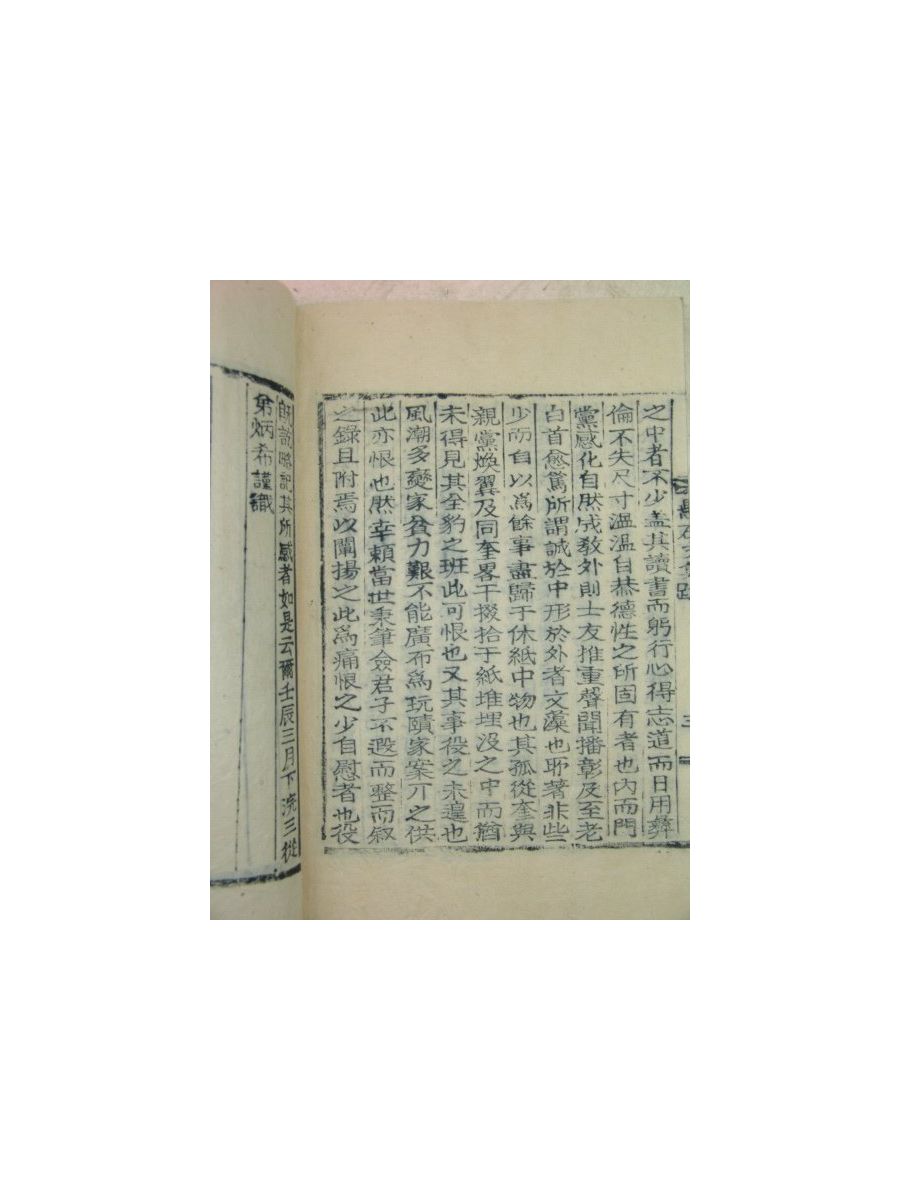 之中者不少盖其讀書而躬行心得志道而日用彛
倫不失尺寸溫溫自恭德性之所固有者也內而門
黨感化自然成敎外則士友推重聲聞播彰及至老
白首愈篤所謂誠於中形於外者文藻也所著非些
少而自以爲餘事盡歸于休紙中物也其孤從奎與
親黨煥翼及同奎畧干掇拾于紙堆埋没之中而猶
未得見其全豹之班此可恨也又其事役之未遑也
風潮多變家貧力艱不能廣布爲玩賾家案丌之供
此亦恨也然幸賴當世秉筆僉君子不遐而整而叙
之錄且附焉以闡揚之此爲痛恨之少自慰者也役
旣訖略記其所感者如是云爾壬辰三月下浣三從
弟炳希謹識